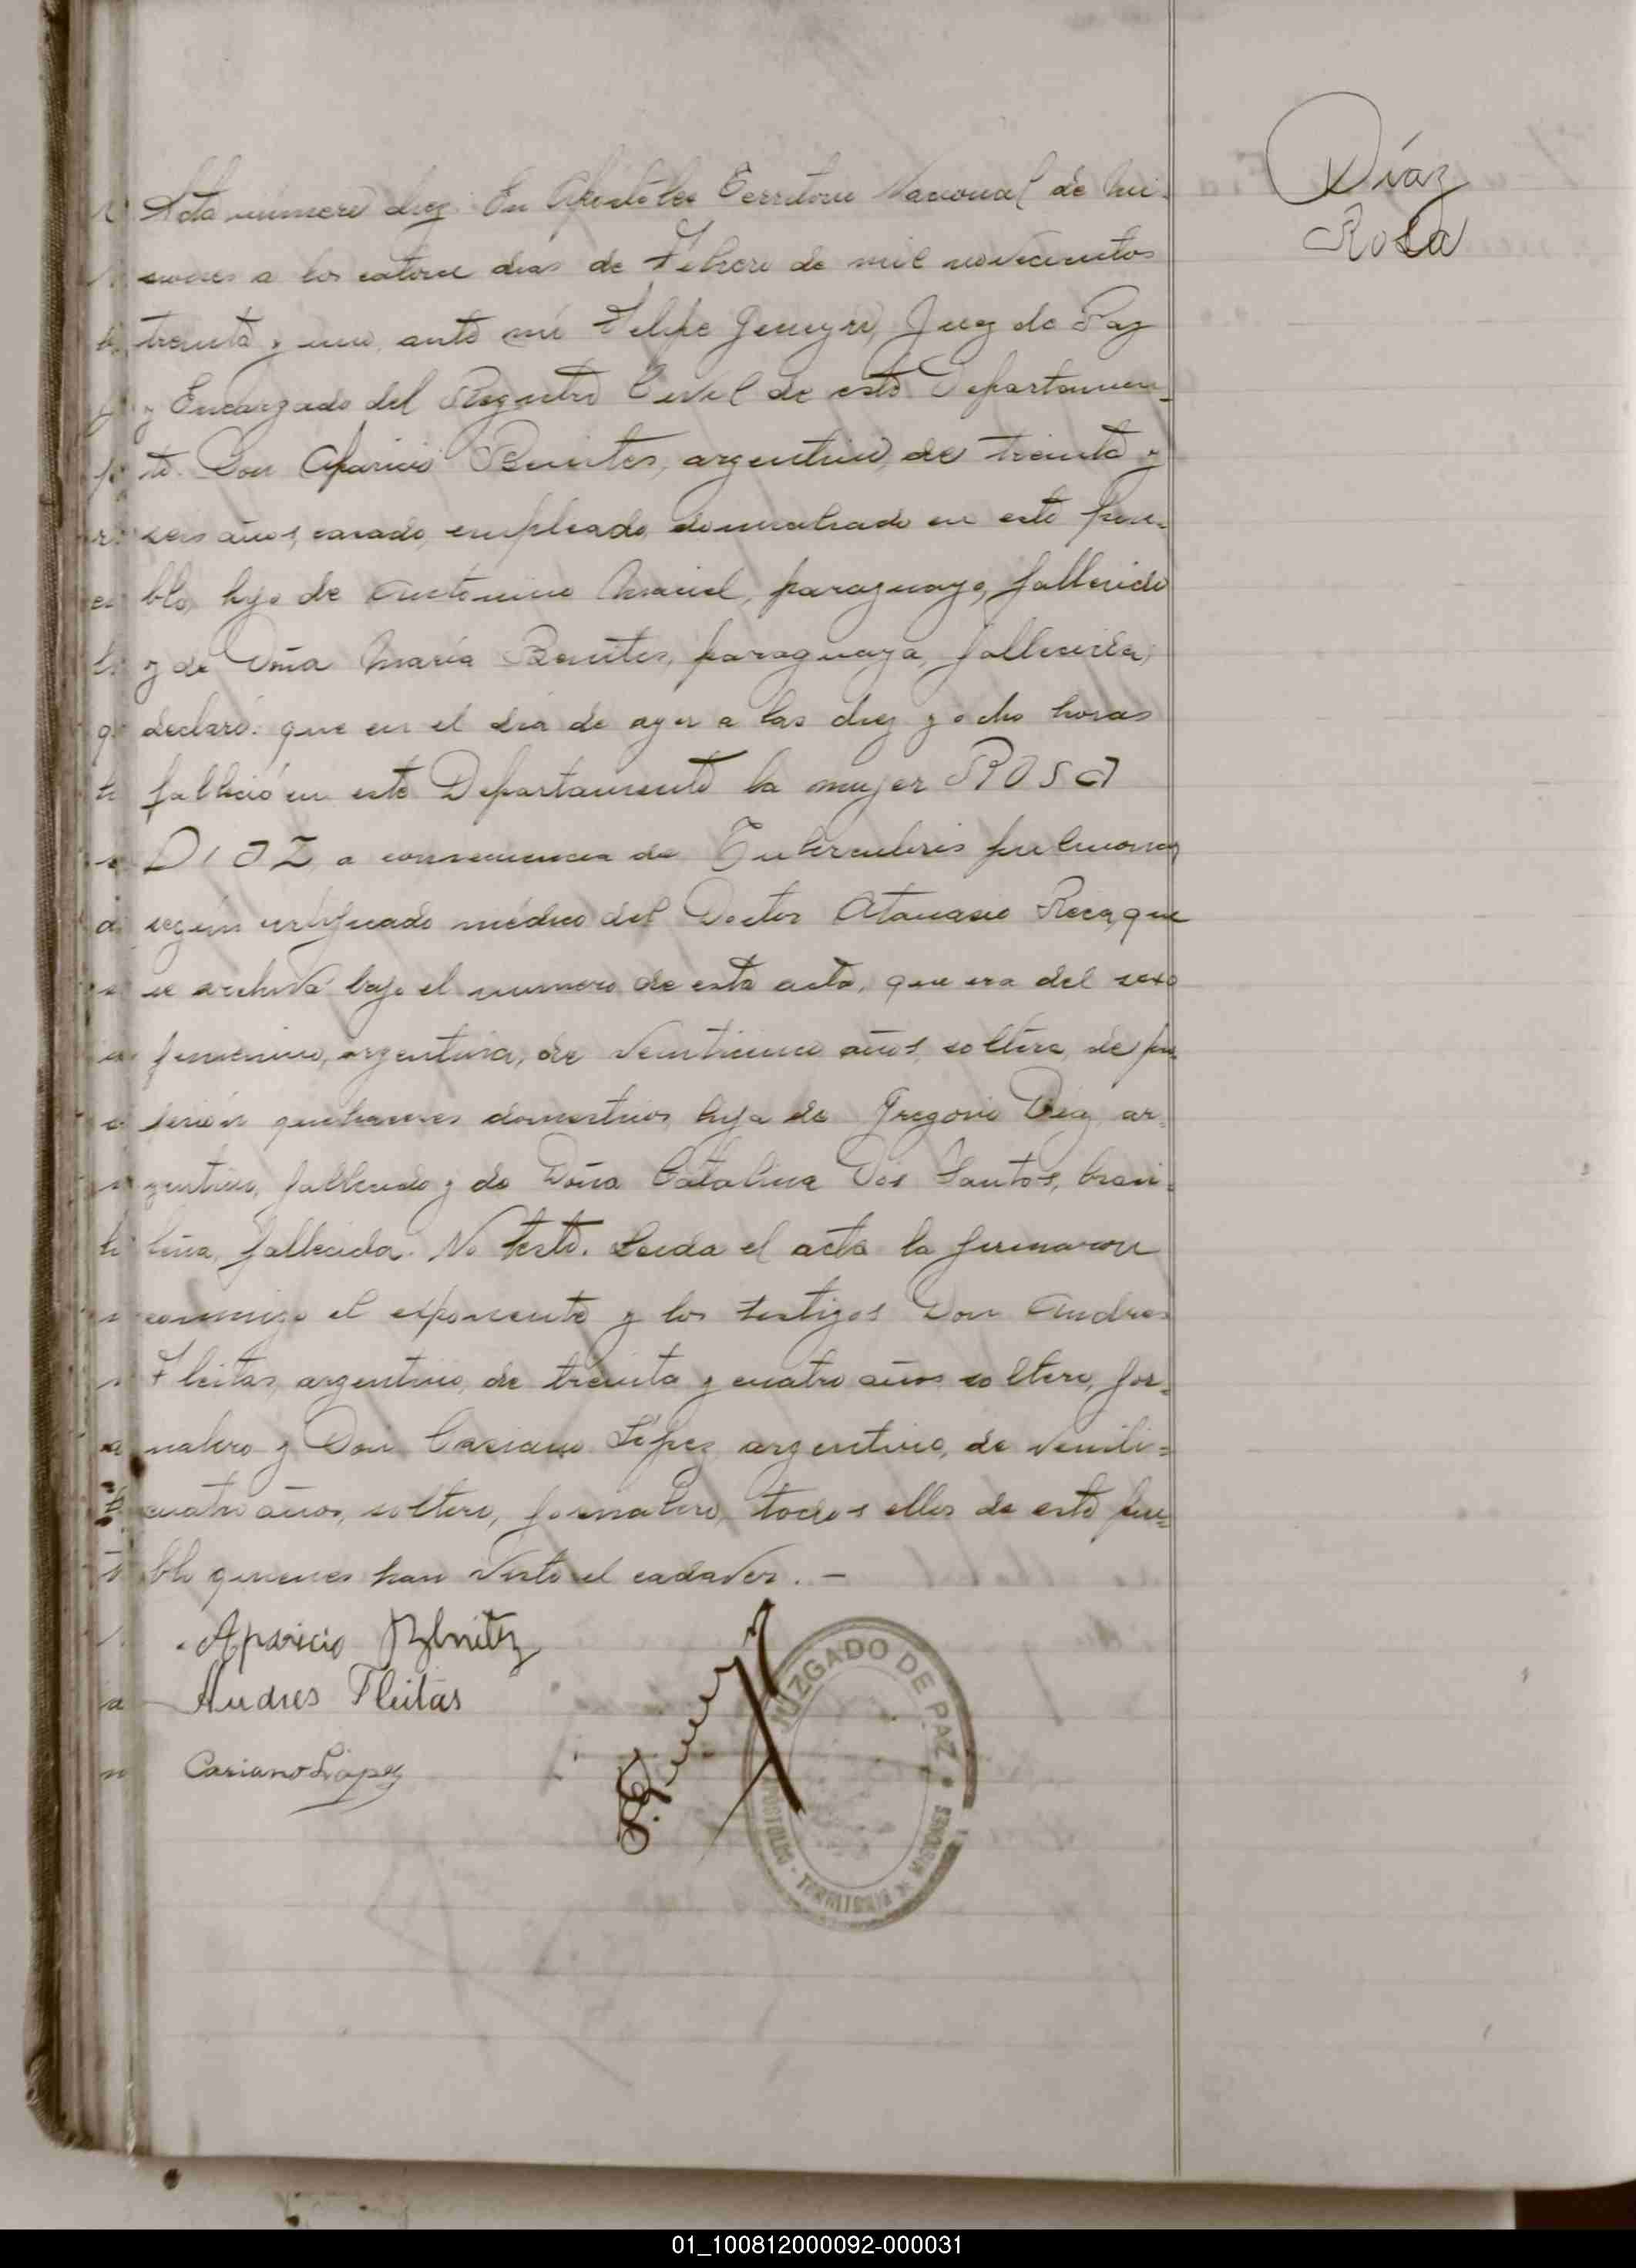 Díaz
Rosa
Acta numero diez. En Apostoles Territorio Nacional de Mi-
siones a los catorce dias de Febrero de mil novecientos
treinta y uno, ante mi Felipe Juez de Paz
y Encargado del Registro Civil de este Departamen-
to. Don Aparicio Benites, argentino, de treinta y
seis años, casado, empleado, domiciliado en este pue-
blo, hijo de Antonino Maciel, paraguayo, fallecido
y de Doña María Benites, paraguaya, fallecida,
declaró: que en el dia de ayer a las diez y ocho horas
falleció en este Departamento la mujer ROSA
DIAZ, a consecuencia de Tuberculosis pulmonar
según certificado médico del Doctor Atanasio Roca, que
se archiva bajo el numero de esta acta, que era del sexo
femenino, argentina, de veinticinco años, soltera, de pro-
fesión quehaceres domesticos, hija de Gregorio Diaz, ar-
gentino, fallecido y de Doña Catalina Dos Santos, brasi-
leña, fallecida. No testó. Leida el acta la firmaron
conmigo el exponente y los testigos Don Andres
Fleitas, argentino, de treinta y cuatro años, soltero, jor-
nalero y Don Casiano López argentino, de veinti-
cuatro años, soltero, jornalero, todos ellos de este pue-
blo quienes han visto el cadaver. —
Aparicio Benitez
Andres Fleitas
Casiano López
JUZGADO DE PAZ
APOSTOLES - TERRITORIO DE MISIONES
01_100812000092-000031